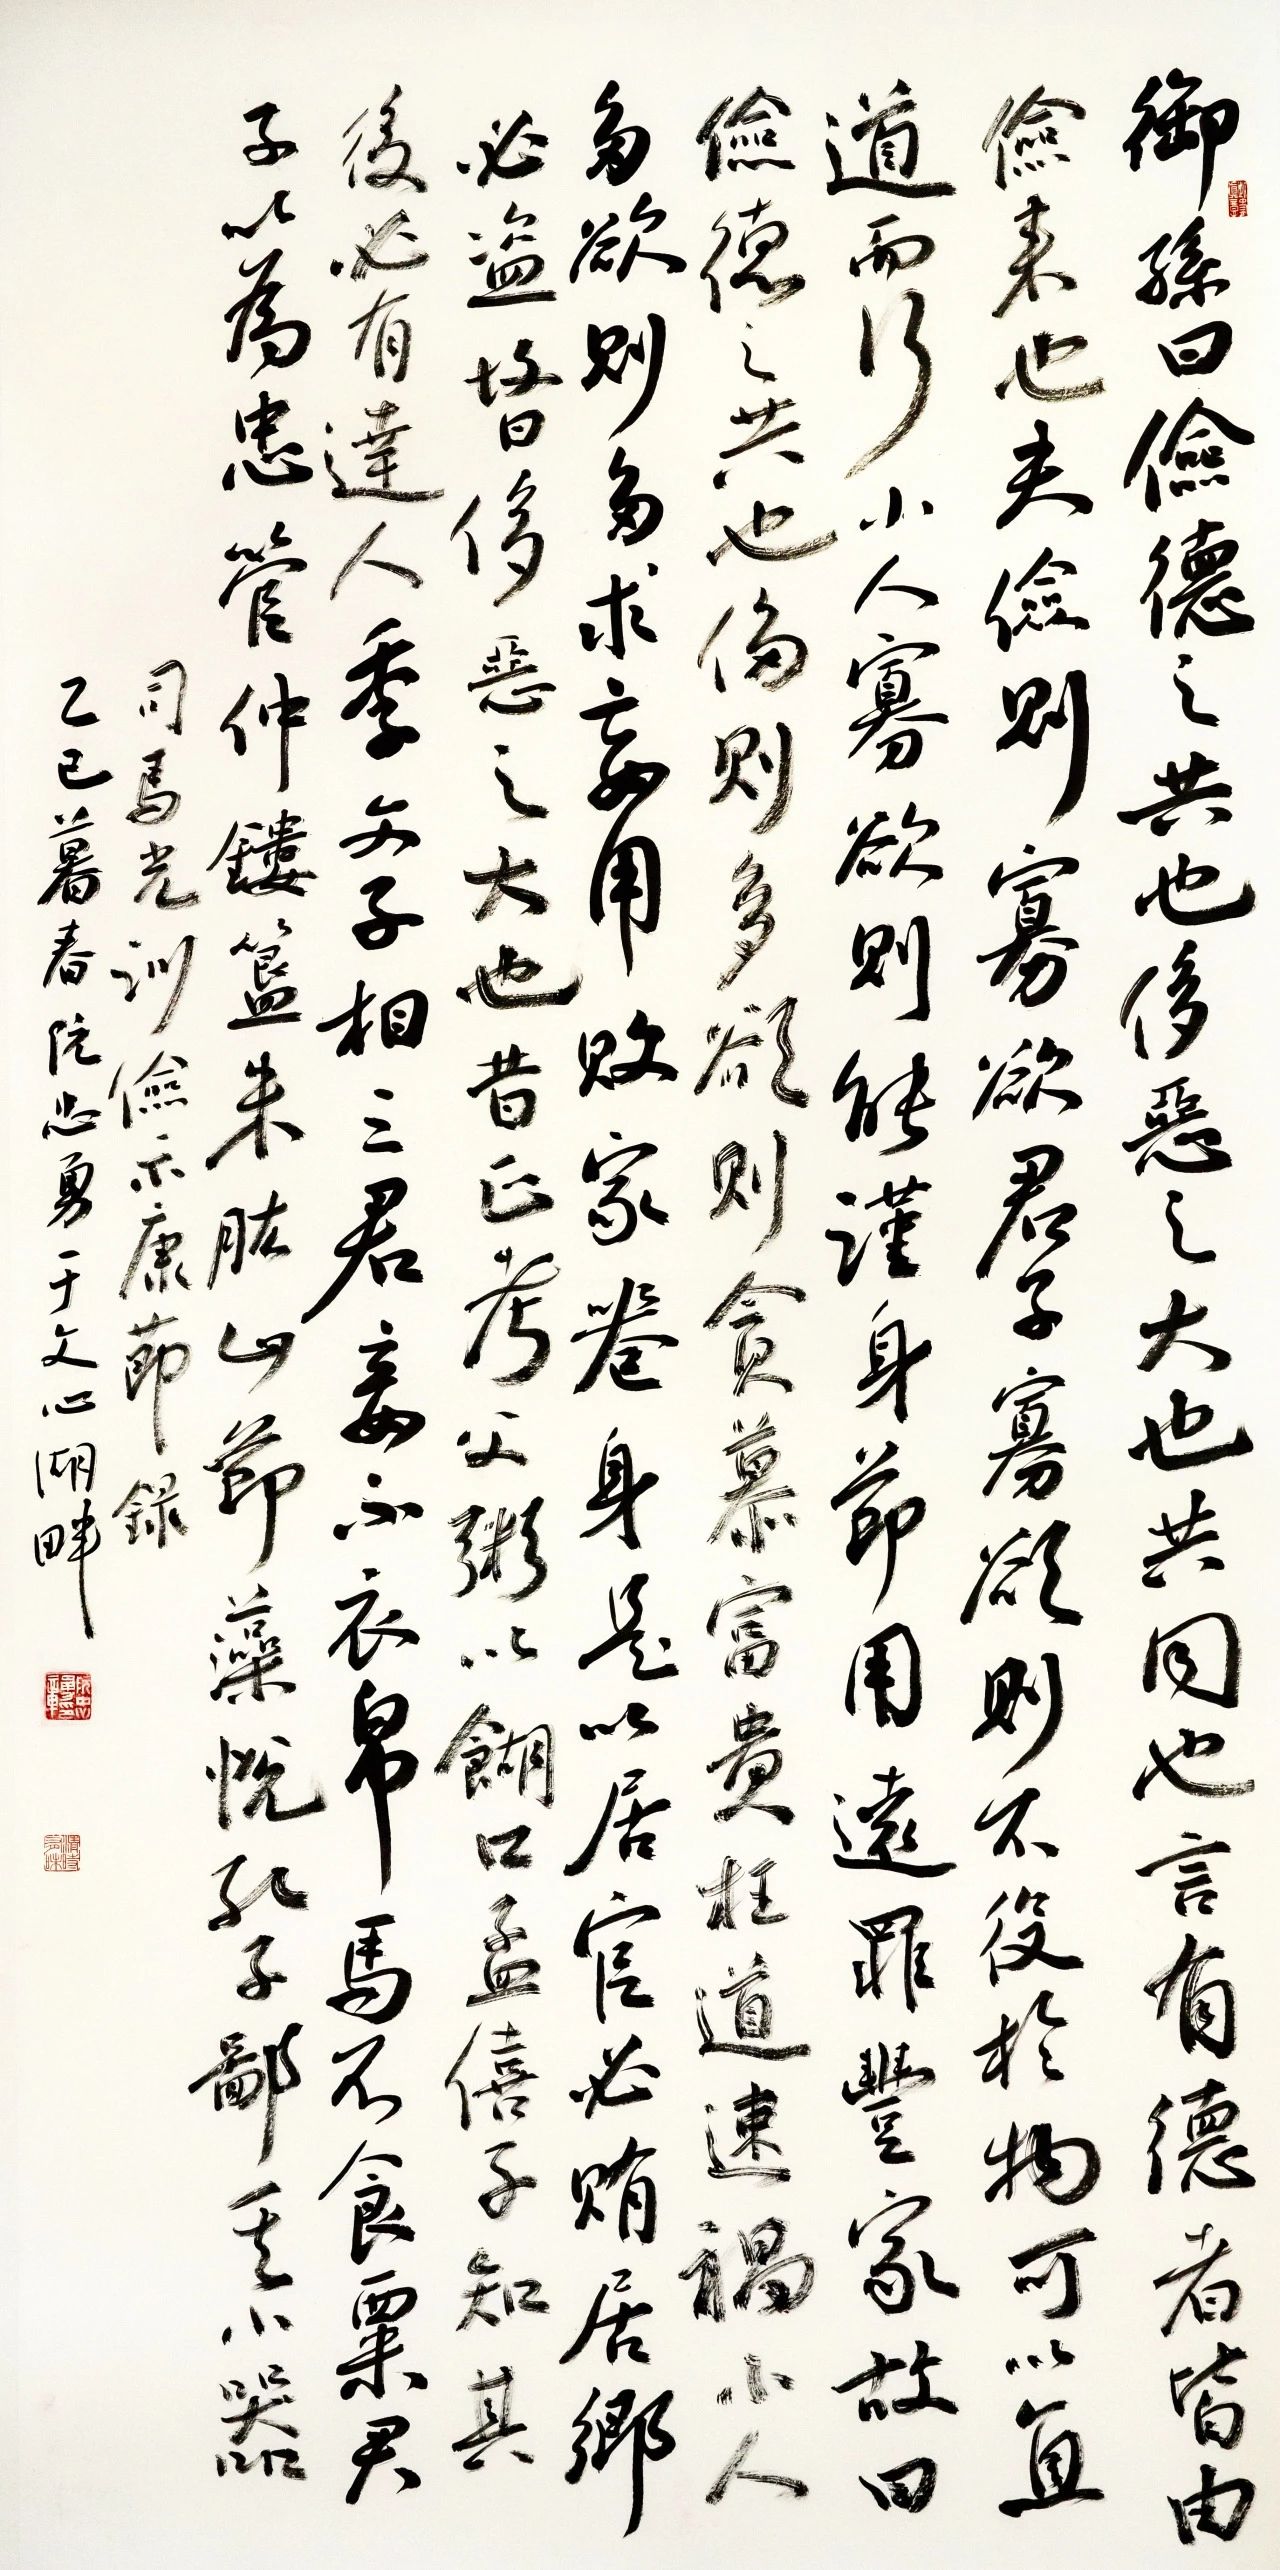 御孫曰儉德之共也侈惡之大也共同也言有德者皆由
儉來也夫儉則寡欲君子寡欲則不役於物可以直
道而行小人寡欲則能謹身節用遠罪豐家故曰
儉德之共也侈則多欲則貪慕富貴枉道速禍小人
多欲則多求妄用敗家喪身是以居官必賄居鄉
必盜故曰侈惡之大也昔正考父粥以餬口孟僖子知其
後必有達人季文子相三君妾不衣帛馬不食粟君
子以為忠管仲鏤簋朱肱山節藻悅孔子鄙其小器
司馬光訓儉示康節錄
乙巳暮春阮忠勇于文心湖畔